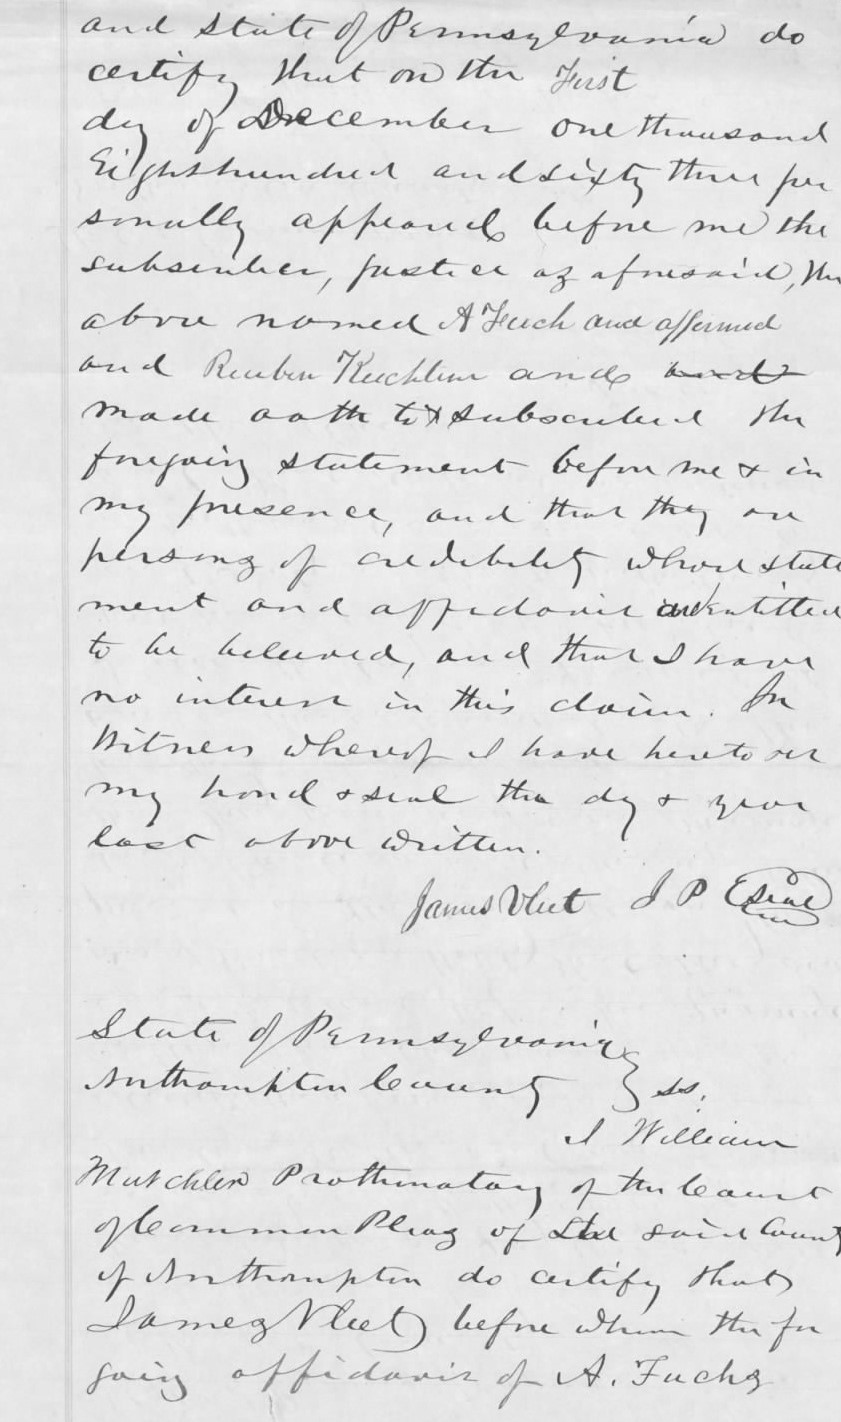 and State of Pennsylvania do
certify that on the First
day of December one thousand
Eighthundred and sixty three per
sonally appeared before me the
subscriber, Justice as aforesaid, the
above named A Fuch and affirmed
and Reuben Kechline and
made oath to & subscribed the
foregoing statement before me & in
my presence, and that they are
persons of credibility whose state
ment and affidavit are entitled
to be believed, and that I have
no interest in this claim. In
Witness whereof I have hereto set
my hand & seal the day & year
last above written.
James Vliet J P Seal
State of Pennsylvania
Northampton County } ss.
I William
Mutchler Prothonotary of the Court
of Common Pleas of the said County
of Northampton do certify that
James Vliet before whom the for
going affidavit of A. Fuchs